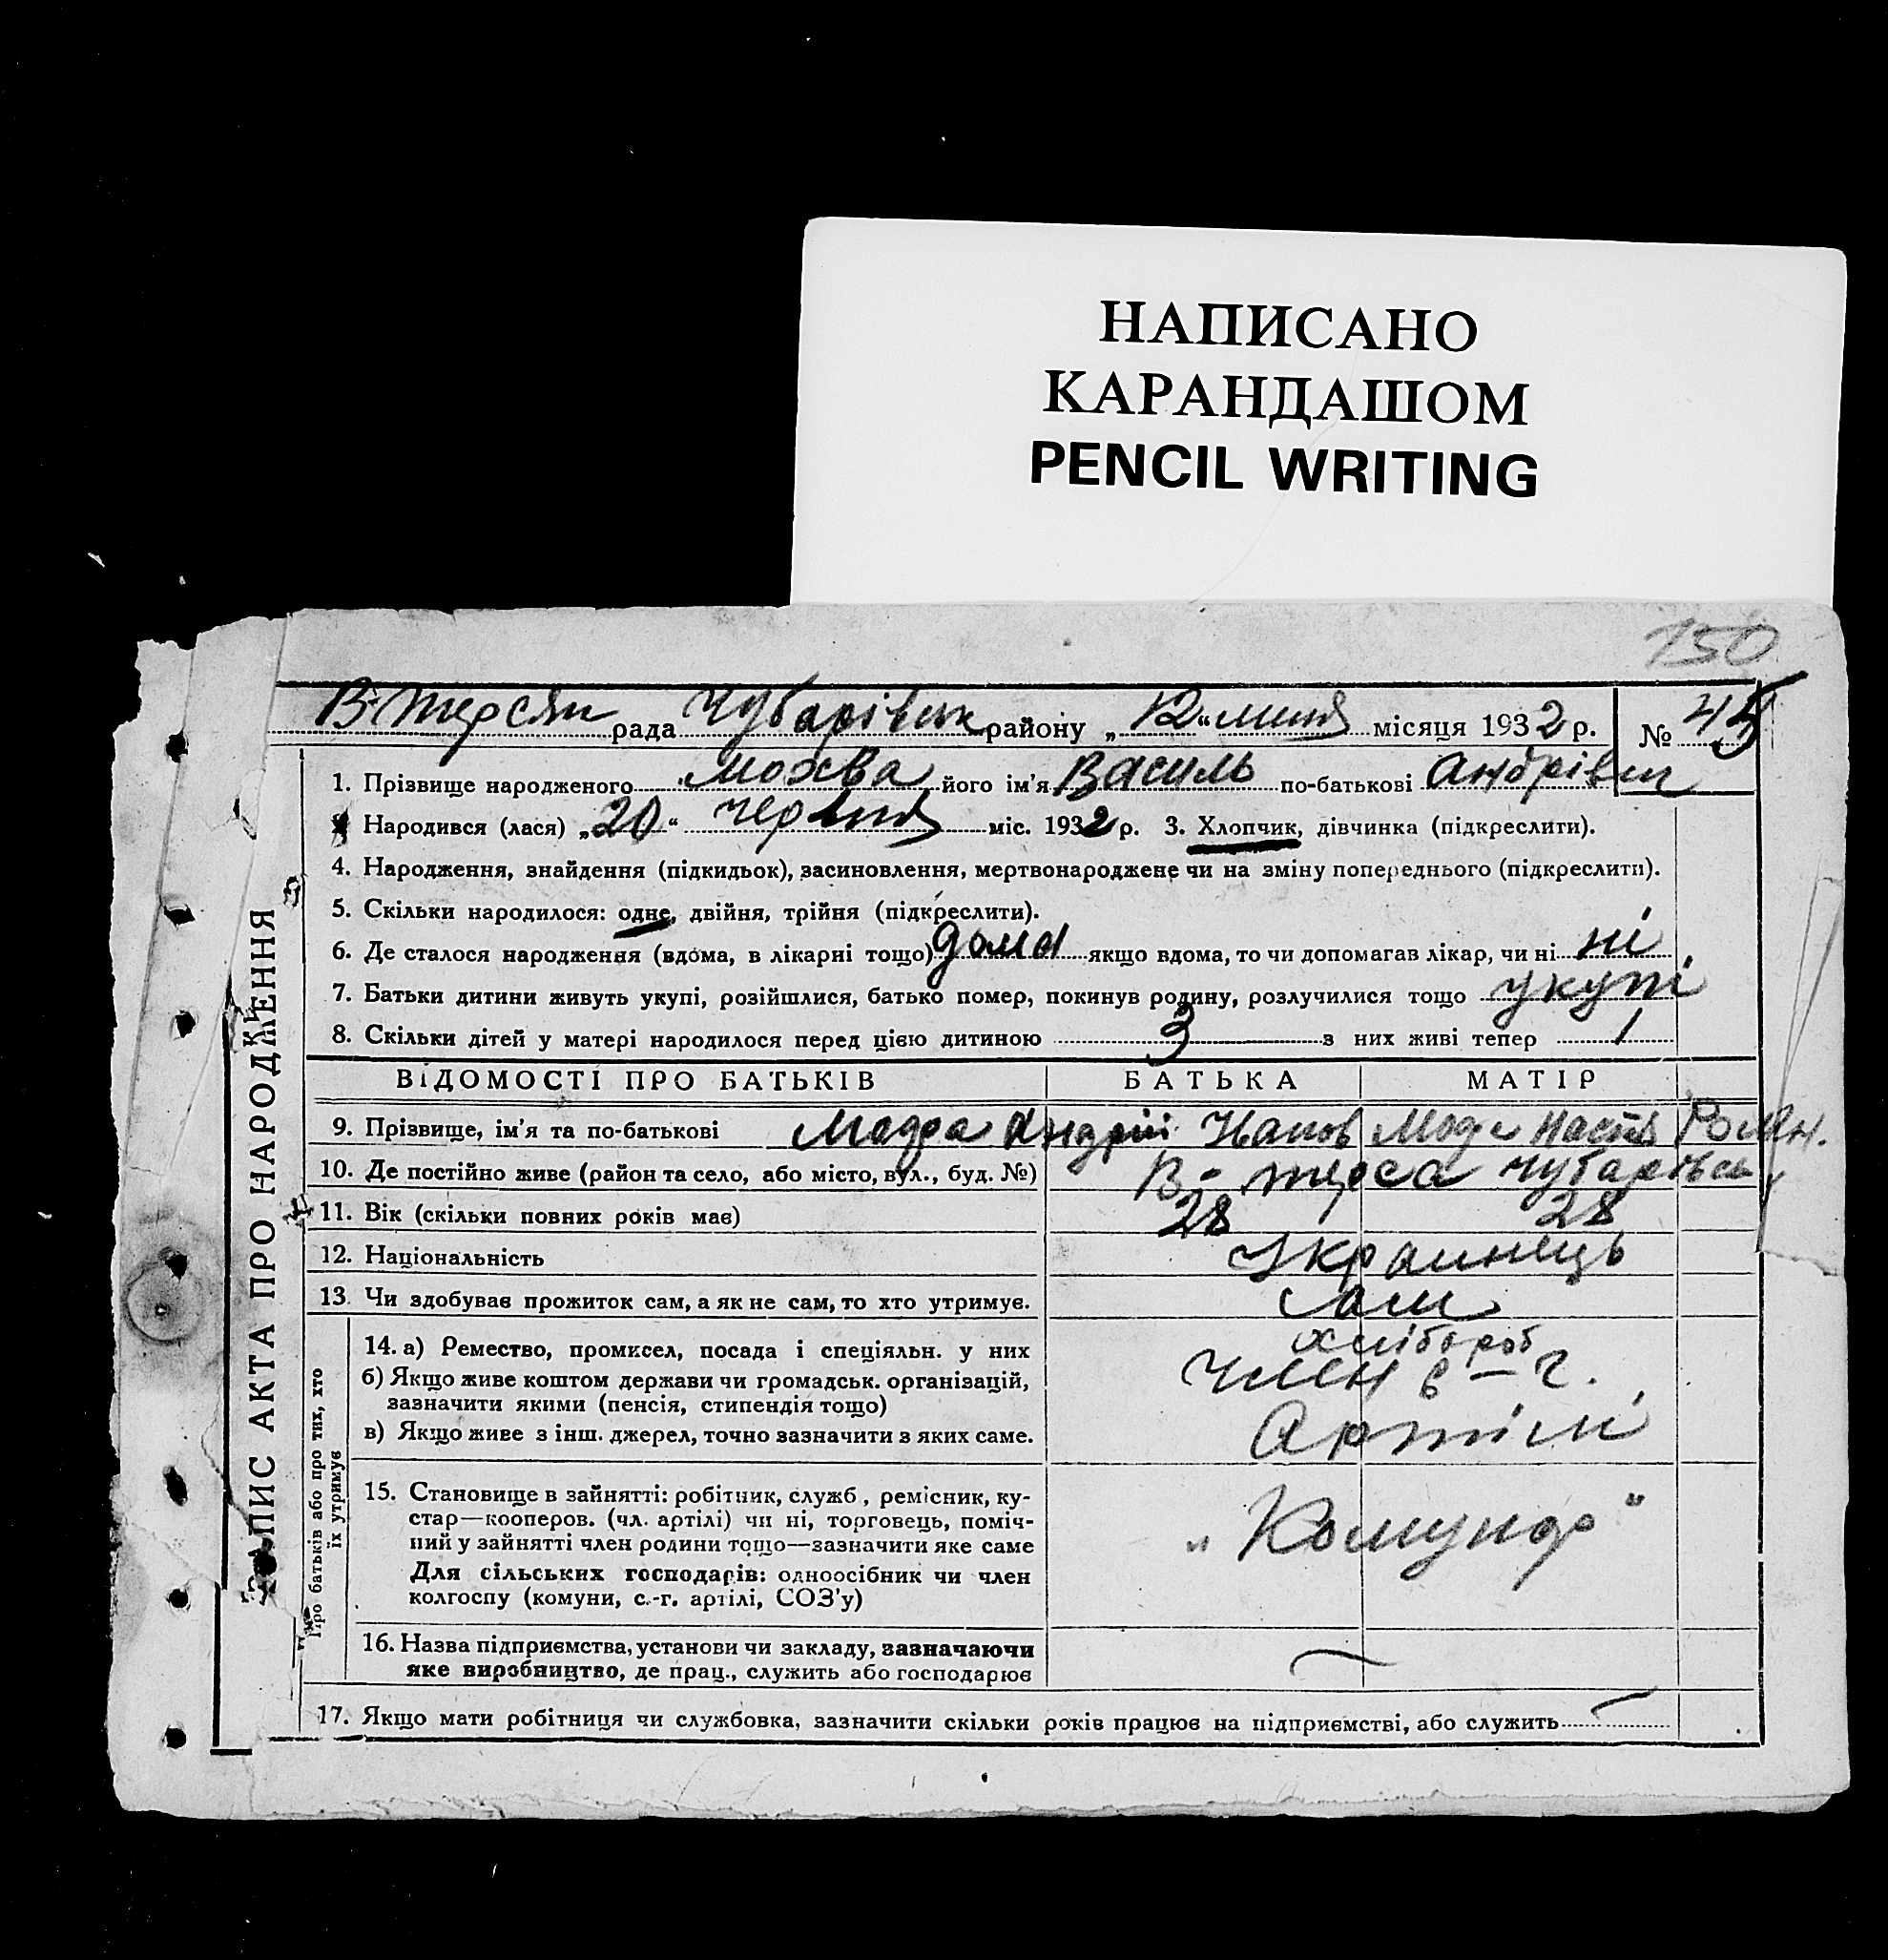 НАПИСАНО
КАРАНДАШОМ
PENCIL WRITING
150
В-Терсян рада Чубарівськ району „12“ липня місяця 1932 р. № 45
1. Прізвище народженого його ім'я Василь по-батькові Андрієвич
Народився (лася) „20“ червня міс. 1932 р. 3. Хлопчик, дівчинка (підкреслити).
4. Народження, знайдення (підкидьок), засиновлення, мертвонароджене чи на зміну попереднього (підкреслити).
5. Скільки народилося: одне, двійня, трійня (підкреслити).
6. Де сталося народження (вдома, в лікарні тощо) дома якщо вдома, то чи допомагав лікар, чи ні ні
7. Батьки дитини живуть укупі, розійшлися, батько помер, покинув родину, розлучилися тощо укупі
8. Скільки дітей у матері народилося перед цією дитиною 3 з них живі тепер 1
ВІДОМОСТІ ПРО БАТЬКІВ БАТЬКА МАТІР
9. Прізвище, ім'я та по-батькові Андрій Иванов Настя Роман.
10. Де постійно живе (район та село, або місто, вул., буд. №) В-Терса Чубарівськ
11. Вік (скільки повних років має) 28 28
12. Національність Украинець
13. Чи здобуває прожиток сам, а як не сам, то хто утримує. сам
14. а) Ремество, промисел, посада і спеціяльн. у них хлібороб
б) Якщо живе коштом держави чи громадськ. організацій, член с-г.
зазначити якими (пенсія, стипендія тощо)
в) Якщо живе з інш. джерел, точно зазначити з яких саме. Артілі
15. Становище в зайнятті: робітник, служб., ремісник, ку-
стар—кооперов. (чл. артілі) чи ні, торговець, поміч-
ний у зайнятті член родини тощо—зазначити яке саме
Для сільських господарів: одноосібник чи член
колгоспу (комуни, с.-г. артілі, СОЗ'у)
16. Назва підприємства, установи чи закладу, зазначаючи
яке виробництво, де прац., служить або господарює
17. Якщо мати робітниця чи службовка, зазначити скільки років працює на підприємстві, або служить
ЗАПИС АКТА ПРО НАРОДЖЕННЯ
Про батьків або про тих, хто
їх утримує